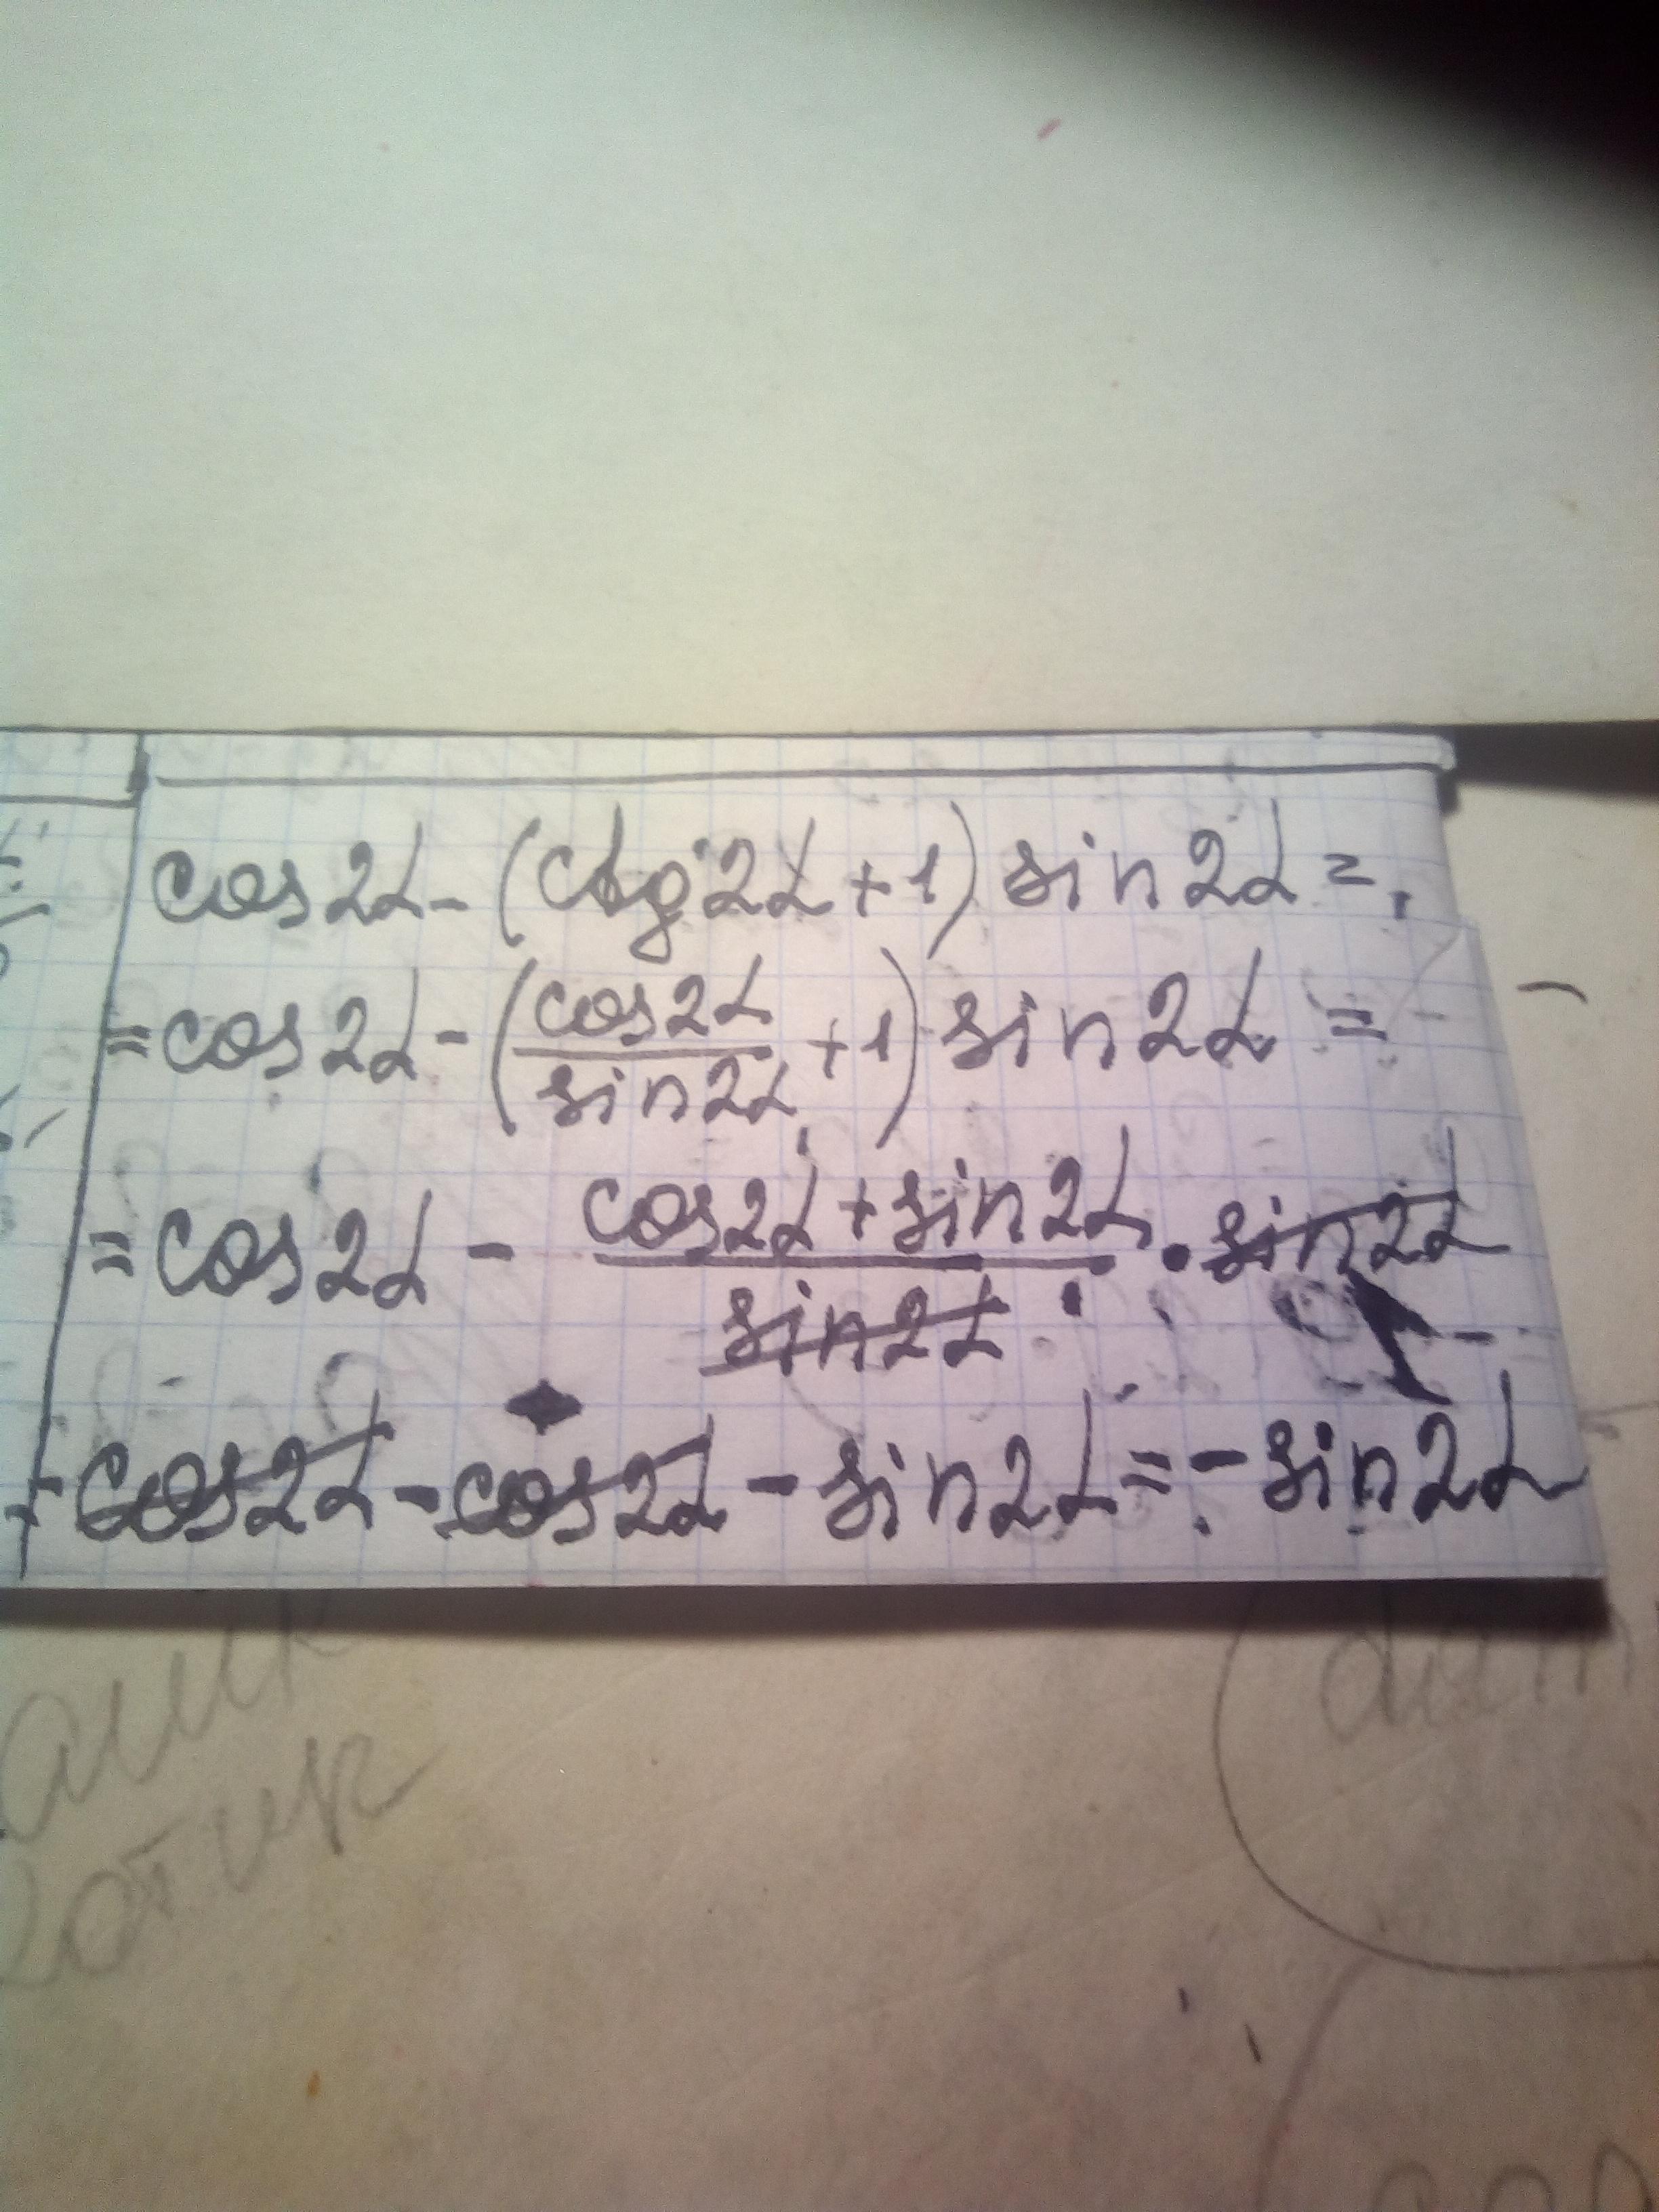 cos2α - (ctg2α + 1) sin2α =
= cos2α - (cos2α/sin2α + 1) sin2α =
= cos2α - (cos2α + sin2α)/sin2α · sin2α =
= cos2α - cos2α - sin2α = - sin2α
котик